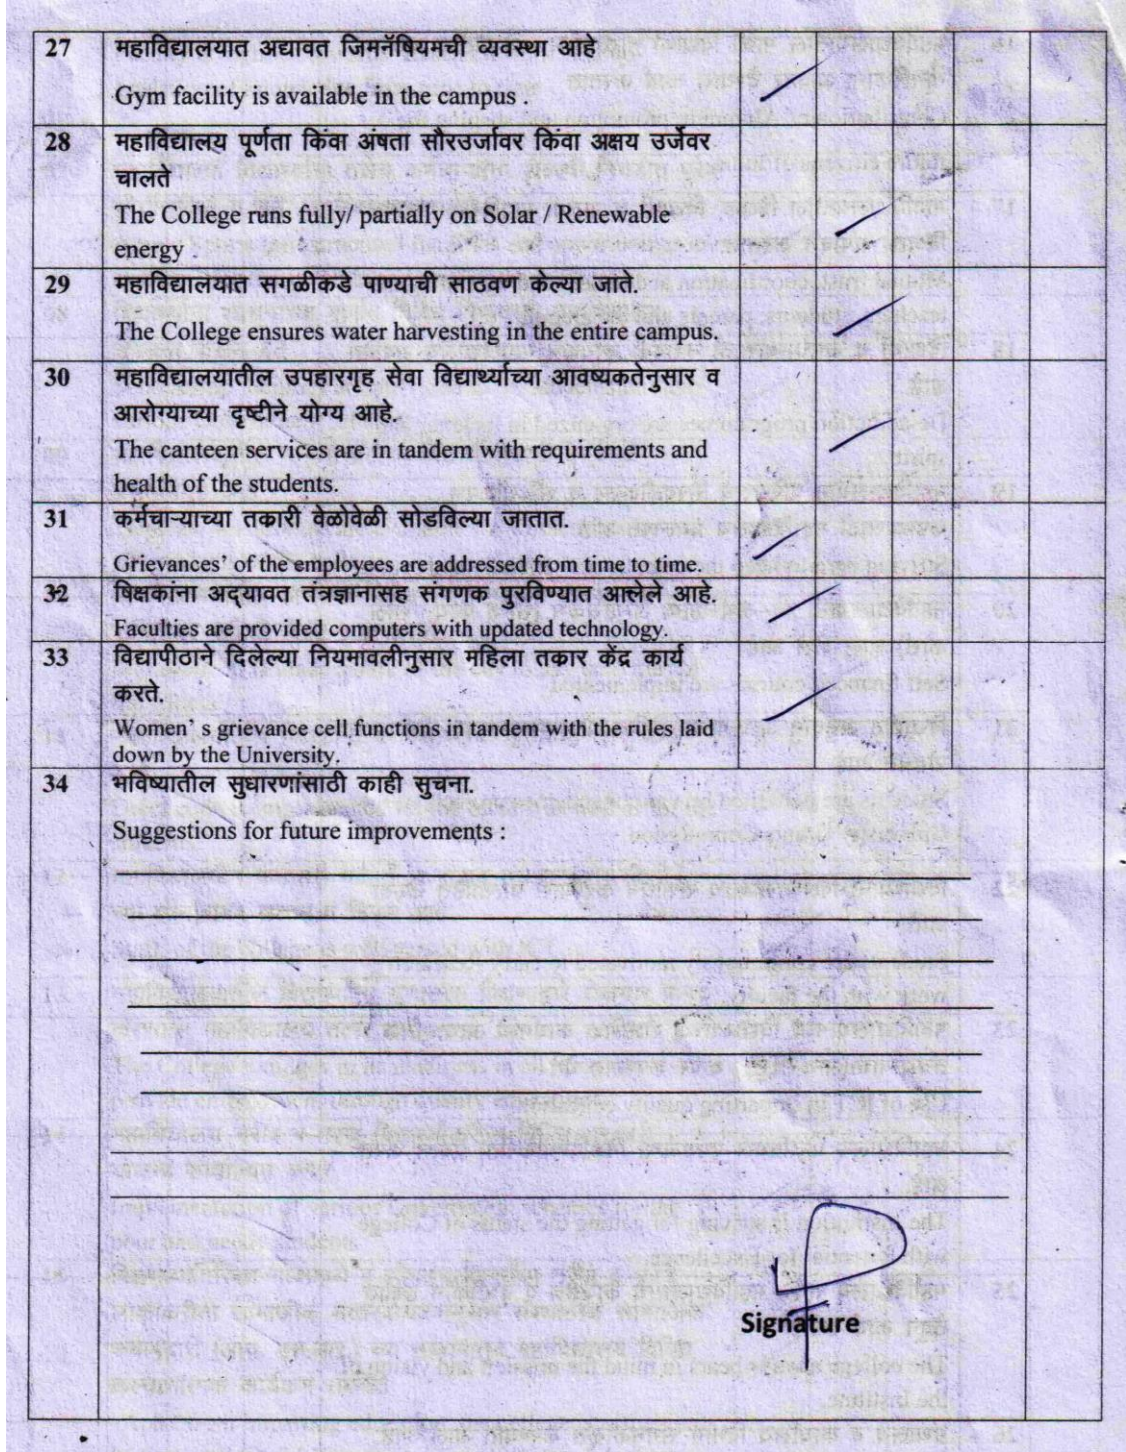 27
महाविद्यालयात अद्यावत जिमनॅषियमची व्यवस्था आहे
Gym facility is available in the campus .
28
महाविद्यालय पूर्णता किंवा अंषता सौरउर्जावर किंवा अक्षय उर्जेवर
चालते
The College runs fully/ partially on Solar / Renewable
energy .
29
महाविद्यालयात सगळीकडे पाण्याची साठवण केल्या जाते.
The College ensures water harvesting in the entire campus.
30
महाविद्यालयातील उपहारगृह सेवा विद्यार्थ्याच्या आवष्यकतेनुसार व
आरोग्याच्या दृष्टीने योग्य आहे.
The canteen services are in tandem with requirements and
health of the students.
31
कर्मचाऱ्याच्या तकारी वेळोवेळी सोडविल्या जातात.
Grievances’ of the employees are addressed from time to time.
32
षिक्षकांना अद्यावत तंत्रज्ञानासह संगणक पुरविण्यात आलेले आहे.
Faculties are provided computers with updated technology.
33
विद्यापीठाने दिलेल्या नियमावलीनुसार महिला तकार केंद्र कार्य
करते.
Women’ s grievance cell functions in tandem with the rules laid
down by the University.
34
भविष्यातील सुधारणांसाठी काही सुचना.
Suggestions for future improvements :
Signature